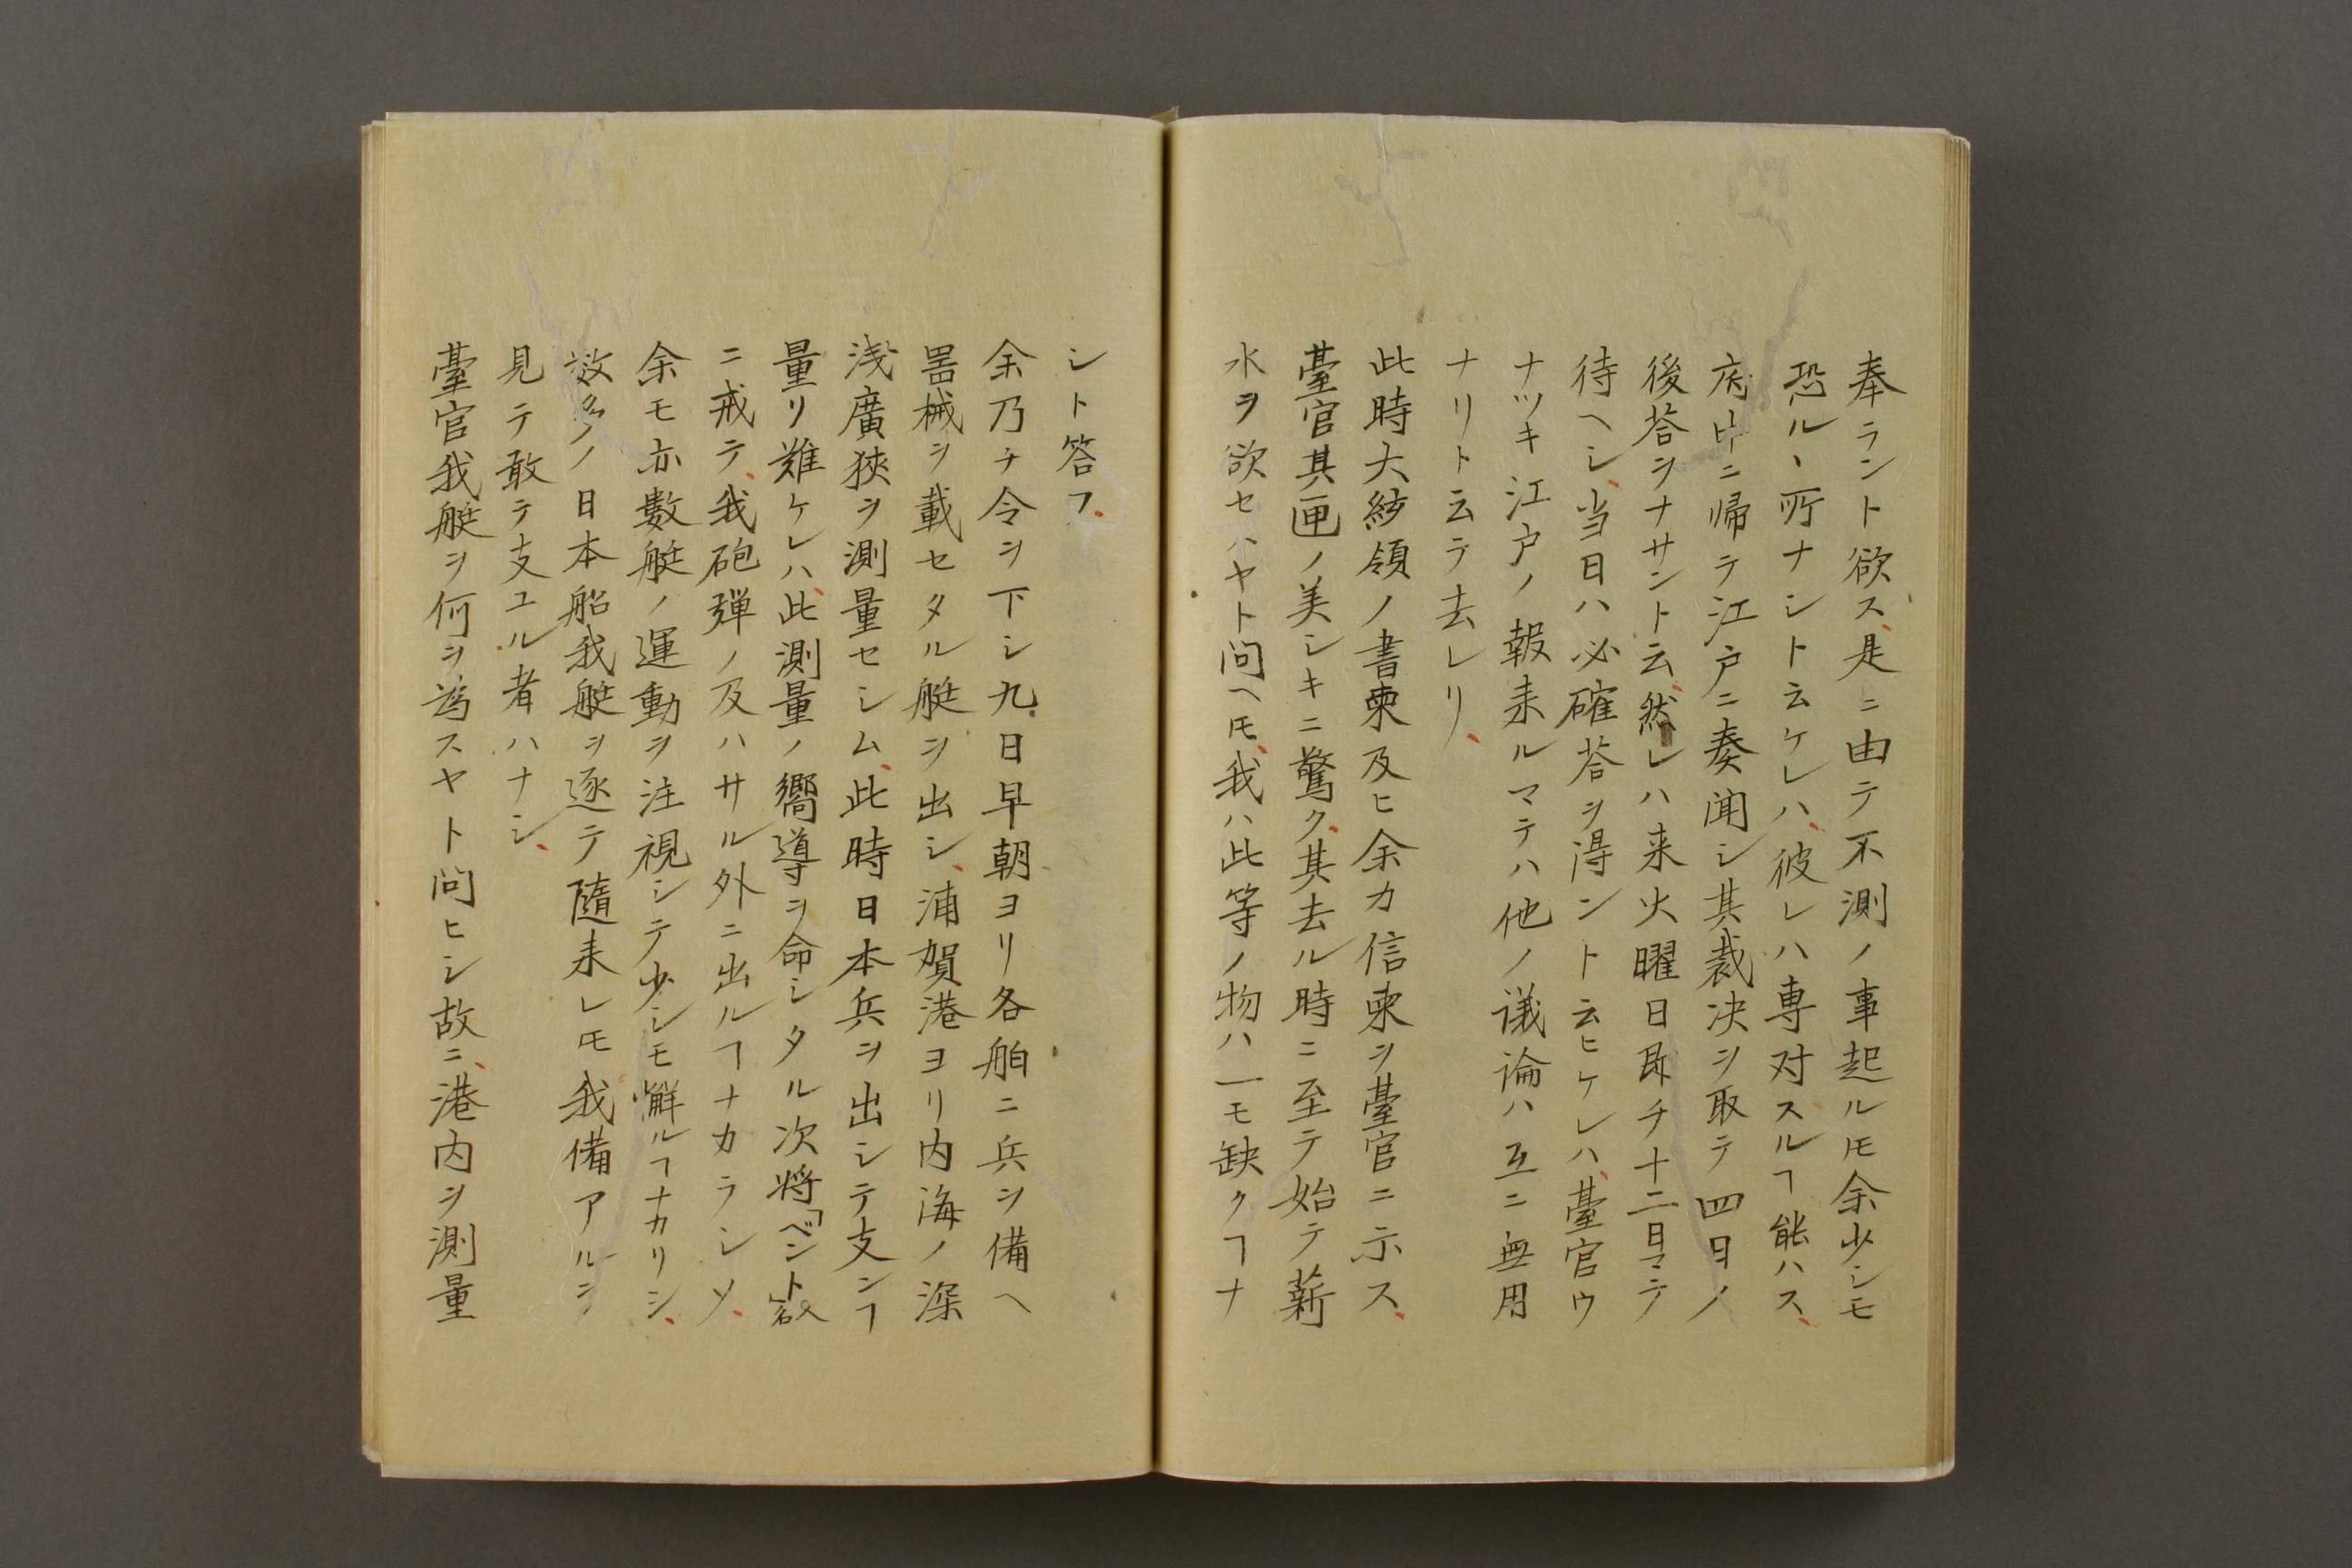 奉ラント欲ス、是ニ由テ不測ノ事起ルモ余少シモ
恐ルヽ所ナシト云ケレハ、彼レハ専対スルヿ能ハス、
府中ニ帰テ江戸ニ奏聞シ其裁决ヲ取テ四日ノ
後荅ヲナサント云、然レハ来火曜日即チ十二日マテ
待ヘシ、当日ハ必確荅ヲ得ント云ヒケレハ、臺官ウ
ナツキ江戸ノ報来ルマテハ他ノ議論ハ互ニ無用
ナリト云テ去レリ、
此時大統領ノ書柬及ヒ余カ信柬ヲ臺官ニ示ス、
臺官其匣ノ美シキニ驚ク、其去ル時ニ至テ始テ薪
水ヲ欲セハヤト問ヘㇳモ、我ハ此等ノ物ハ一モ缺クヿナ
シト答フ、
余乃チ令ヲ下シ九日早朝ヨリ各舶ニ兵ヲ備ヘ
噐械ヲ載セタル艇ヲ出シ、浦賀港ヨリ内海ノ深
浅廣狹ヲ測量セシム、此時日本兵ヲ出シテ支ンヿ
量リ難ケレハ、此測量ノ嚮導ヲ命シタル次将「ベント」名
ニ戒テ、我砲弾ノ及ハサル外ニ出ルヿナカラシメ、
余モ亦數艇ノ運動ヲ注視シテ少シモ懈ルヿナカリシ、
数多ノ日本船我艇ヲ逐テ随来レㇳモ我備アルヲ
見テ敢テ支ユル者ハナシ、
臺官我艇ヲ何ヲ為スヤト問ヒシ故ニ、港内ヲ測量